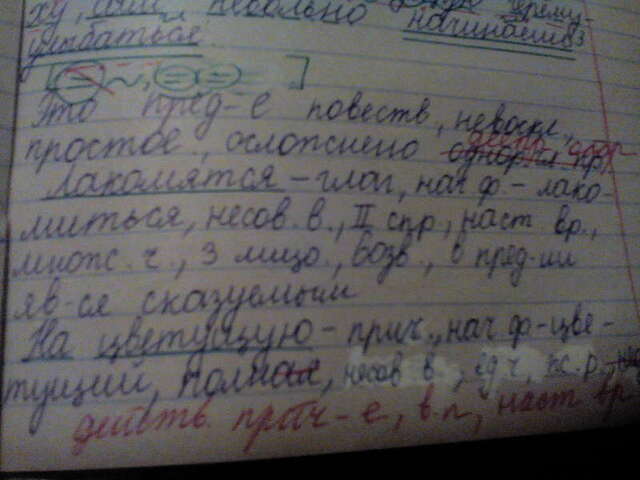 ху, невольно начинаешь
улыбаться
Это пред-е повеств., невоскл.,
простое, ослопснено однор. чл. пр.
Лакомятся - глаг., нач. ф - лако-
миться, несов. в., II спр., наст вр.,
мнопс. ч., 3 лицо., возв., в пред-ии
яв-ся сказуемым
На цветущую - прич., нач ф-цве-
тущий, полное, несов в., ед ч, ж.р.,
действ. прич-е, в.п, наст вр